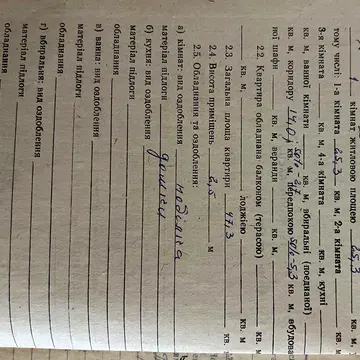 1 кімнат житловою площею 25,3 кв. м,
тому числі: 1-а кімната 25,3 кв. м, 2-а кімната кв. м
3-я кімната кв. м, 4-а кімната кв. м, кухні
кв. м, ванної кімнати кв. м, вбиральні (поєднаної)
кв. м, коридору 14,0 кв. м, передпокою кв. м, вбудова
ної шафи кв. м, веранди кв. м,
2.2. Квартира обладнана балконом (терасою) кв
кв. м, лоджією кв. м.
2.3. Загальна площа квартири 47,3 кв
2.4. Висота приміщень 2,5 м
2.5. Обладнання та оздоблення:
а) кімнат: вид оздоблення побілка
матеріал підлоги дошки
б) кухня: вид оздоблення
матеріал підлоги
обладнання
в) ванна: вид оздоблення
матеріал підлоги
обладнання
г) вбиральня: вид оздоблення
матеріал підлоги
обладнання